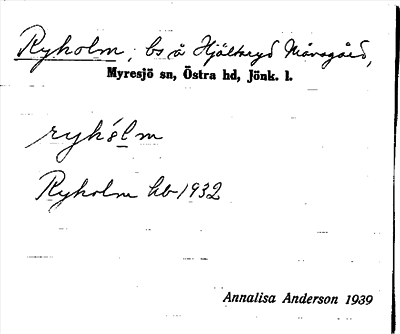 Ryholm, bs å Hjältaryd Månsgård,
Myresjö sn, Östra hd, Jönk. l.
ryhólm
Ryholm hb 1932
Annalisa Anderson 1939